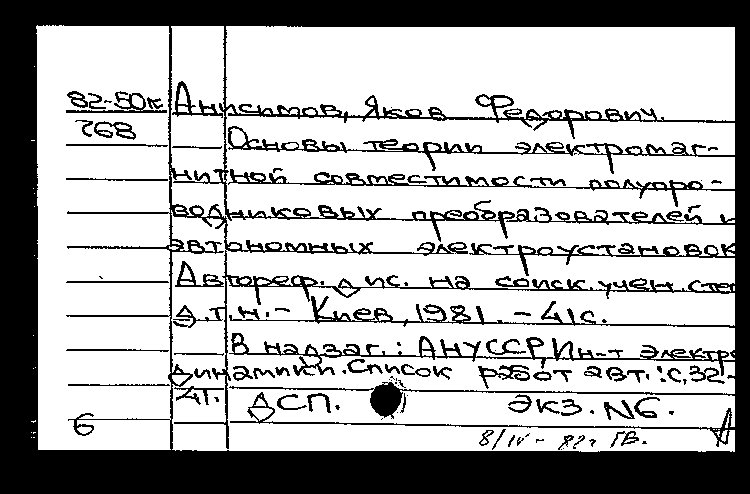 82-50к Анисимов, Яков Федорович.
768 Основы теории электромаг-
нитной совместимости полупро-
водниковых преобразователей и
автономных электроустановок
Автореф. дис. на соиск. учен. степ
д.т.н. - Киев, 1981. - 41с.
В надзаг.: АНУССР, Ин-т электро
динамики. Список работ авт.: с. 32-
41. ДСП. Экз. N6.
6 8/IV - 82г ГВ.